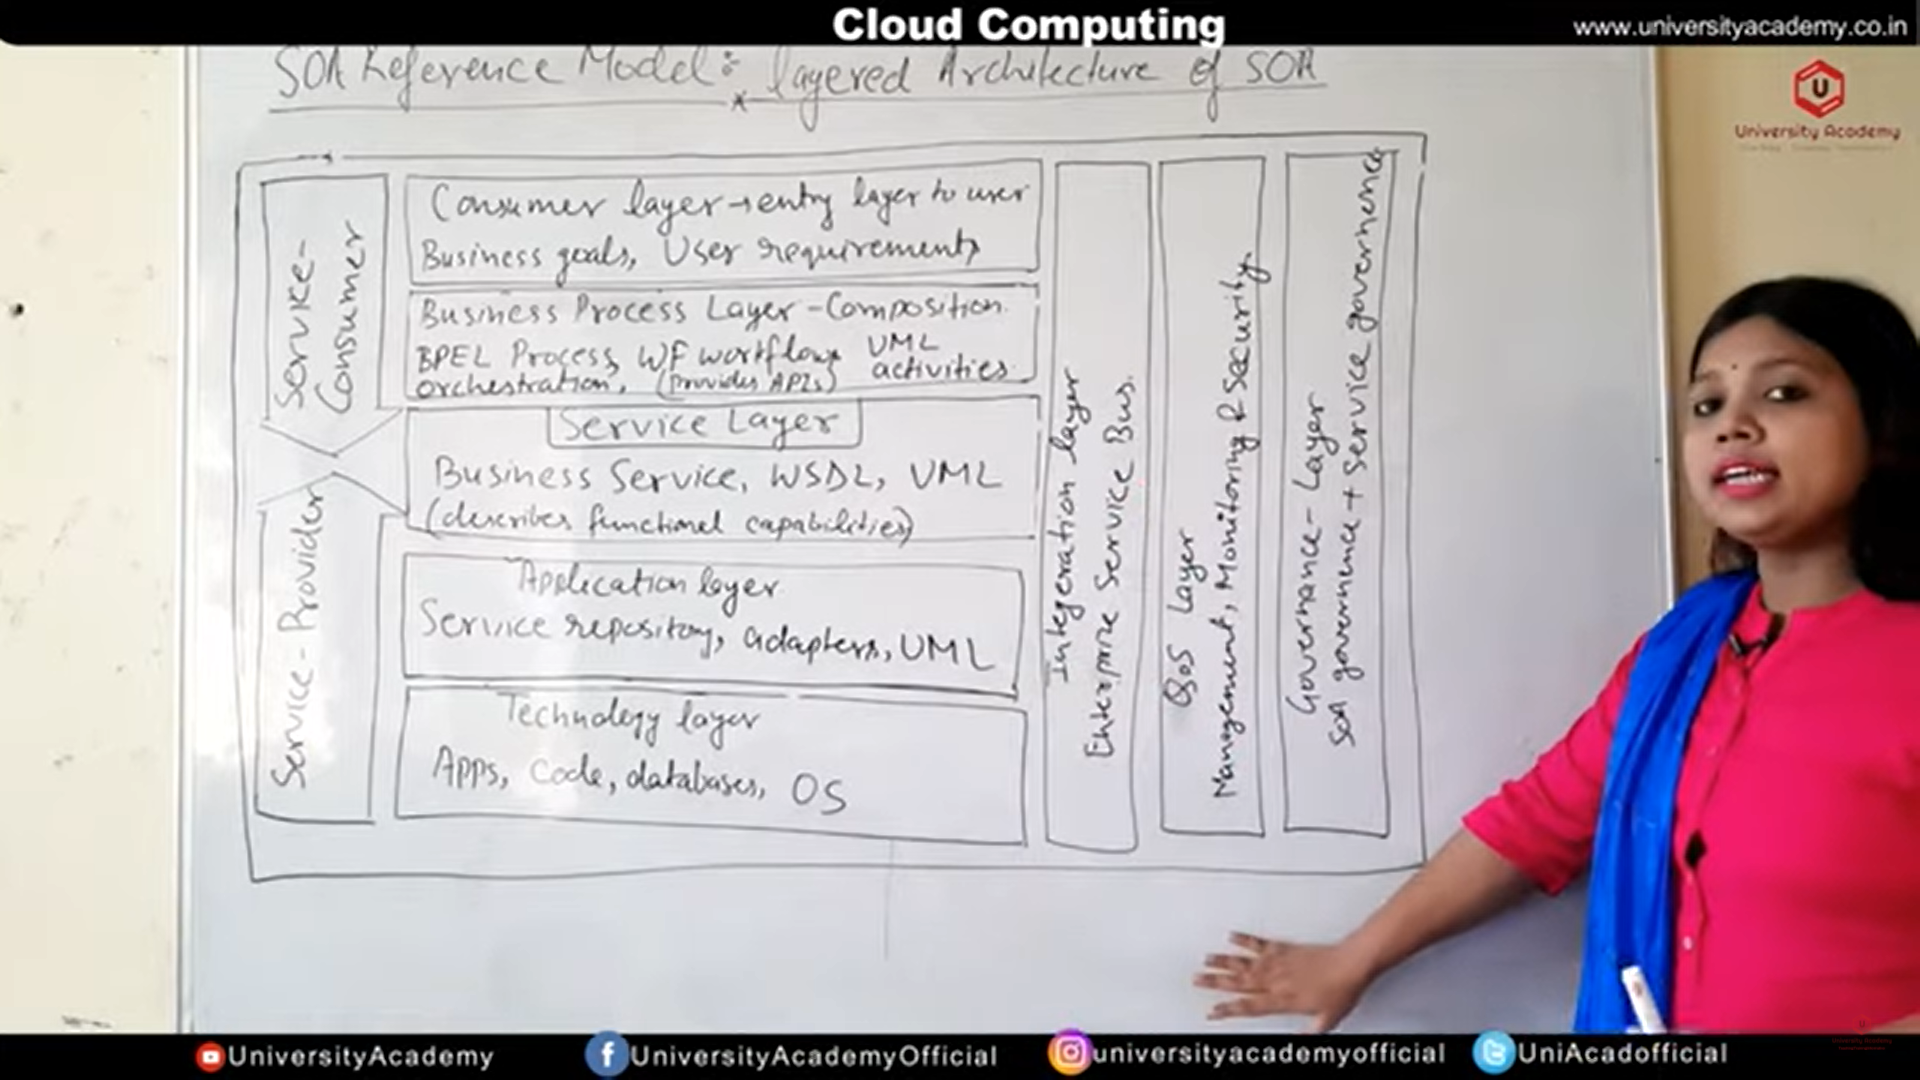 Cloud Computing
www.universityacademy.co.in
SOA Reference Model: layered Architecture of SOA
U
University Academy
Service-
Consumer
Consumer layer → entry layer to user
Business goals, User requirements
Business Process Layer - Composition.
BPEL Process, WF workflows UML
orchestration, (provides APIs) activities.
Service Layer
Business Service, WSDL, UML
(describes functional capabilities)
Service - Provider
Application layer
Service repository, adapters, UML
Technology layer
Apps, Code, databases, OS
Integeration layer
Enterprise Service Bus.
QoS Layer
Management, Monitoring & Security.
Governance - Layer
SOA governence + Service governence.
UniversityAcademy
UniversityAcademyOfficial
universityacademyofficial
UniAcadofficial